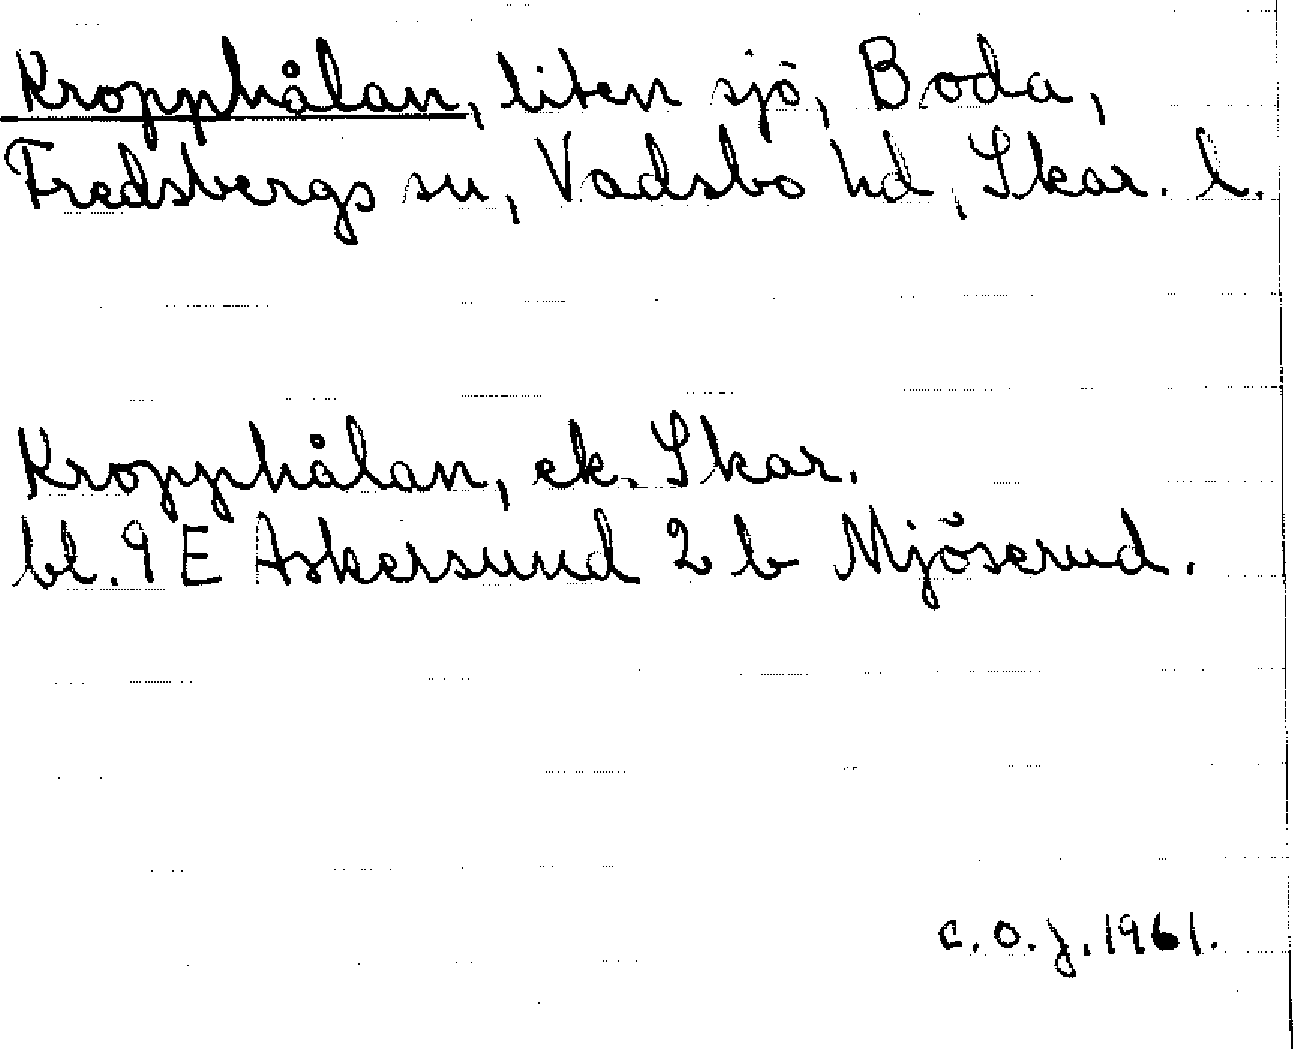 Kropphålan, liten sjö, Boda,
Fredsbergs sn, Vadsbo hd, Skar. l.
Kropphålan, ek. Skar.
bl. 9 E Askersund 2 b Mjöserud.
c. o. j. 1961.